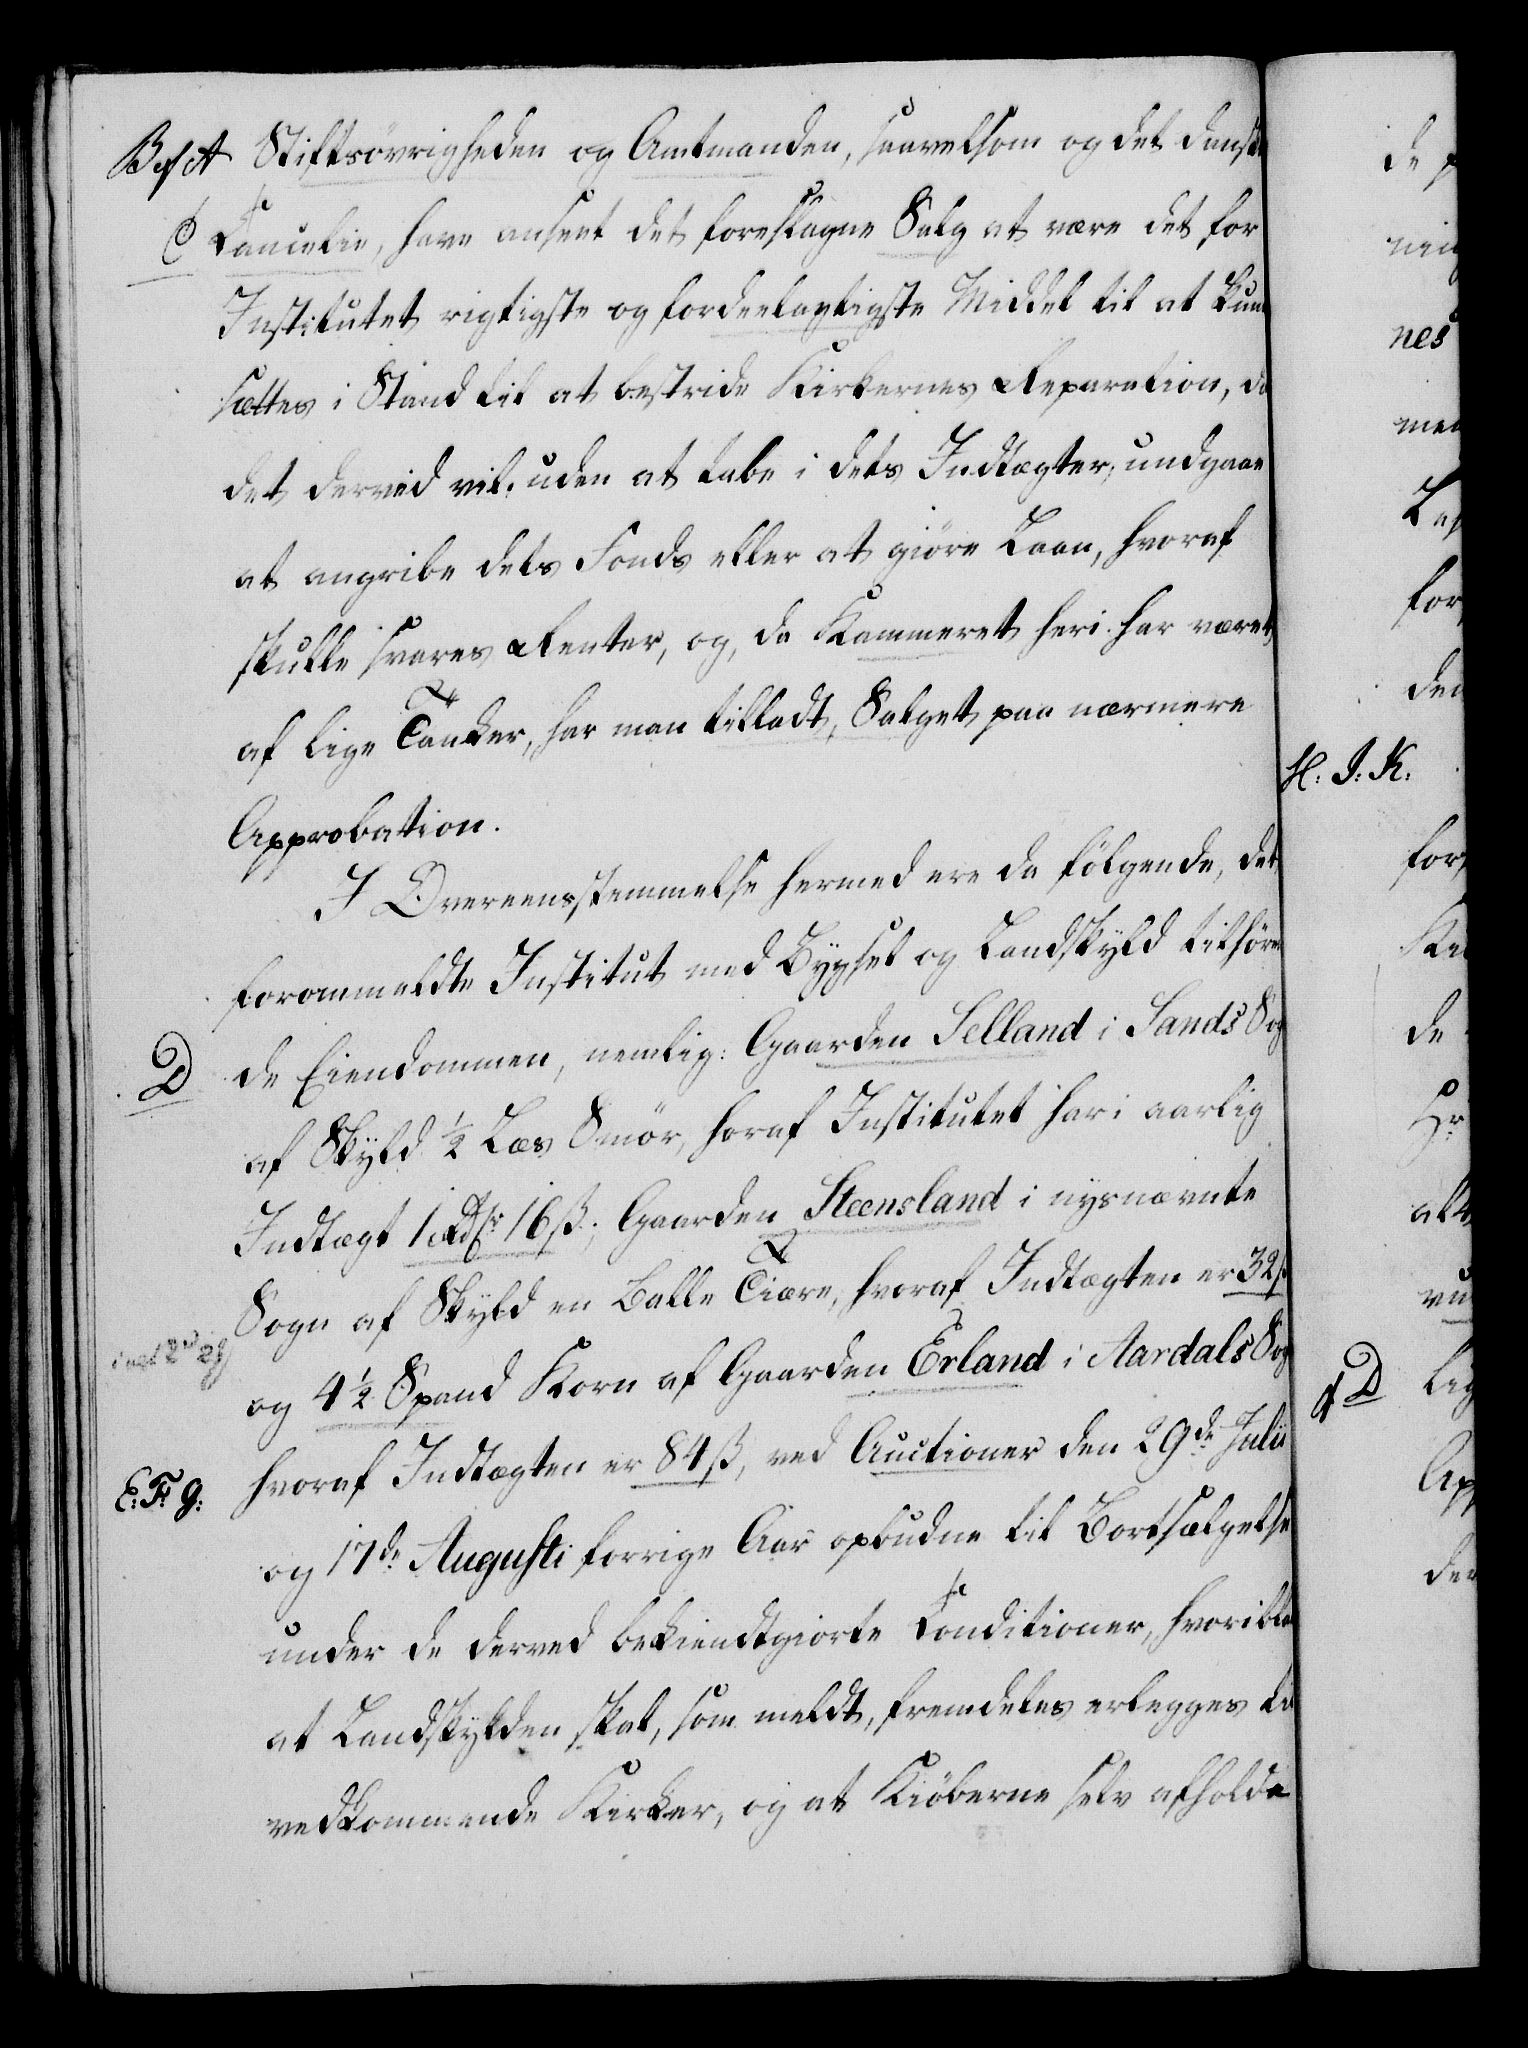 B of A Stiftsøvrigheden og Amtmanden, saavelsom og det danske
C Cancelie, have anseet det foreslagne Salg at være det for
Institutet rigtigste og fordeelagtigste Middel til at kun
sættes i Stand til at bestride Kirkernes Reparation, da
det derved vil, uden at tabe i dets Indtægter, undgaae
at angribe dets Fonds eller at giöre Laan, hvoraf
skulle svares Renter, og, da Kammeret heri har været
af lige Tanker, har man tilladt, Salget paa nærmere
Approbation.
I Overeensstemmelse hermed ere da fölgende, det
forommeldte Institut med Bygsel og Landskyld tilhören
D de Eiendommen, nemlig: Gaarden Selland i Sands Sog
af Skyld ½ Løs Smör, horaf Institutet har i aarlig
Indtægt 1 Rdlr 16 ß; Gaarden Steensland i nysnævnte
Sogn af Skyld en Balle Tiære, hvoraf Indtægten er 32 ß
og 4½ Spand Korn af Gaarden Erland i Aardals Sog
E: F: g: hvoraf Indtægten er 84 ß, ved Auctioner den 29de Julii
og 17de Augusti forrige Aar opbudne til Bortsælgelse
under de derved bekiendtgiorte Conditioner, hvoriblandt
at Landskylden skal, som meldt, fremdeles erlegges til
vedkommende Kirker, og at Kiöberne selv afholde
de
nes
H: I: K:
for
den
for
de
Hr
D
Ap
der